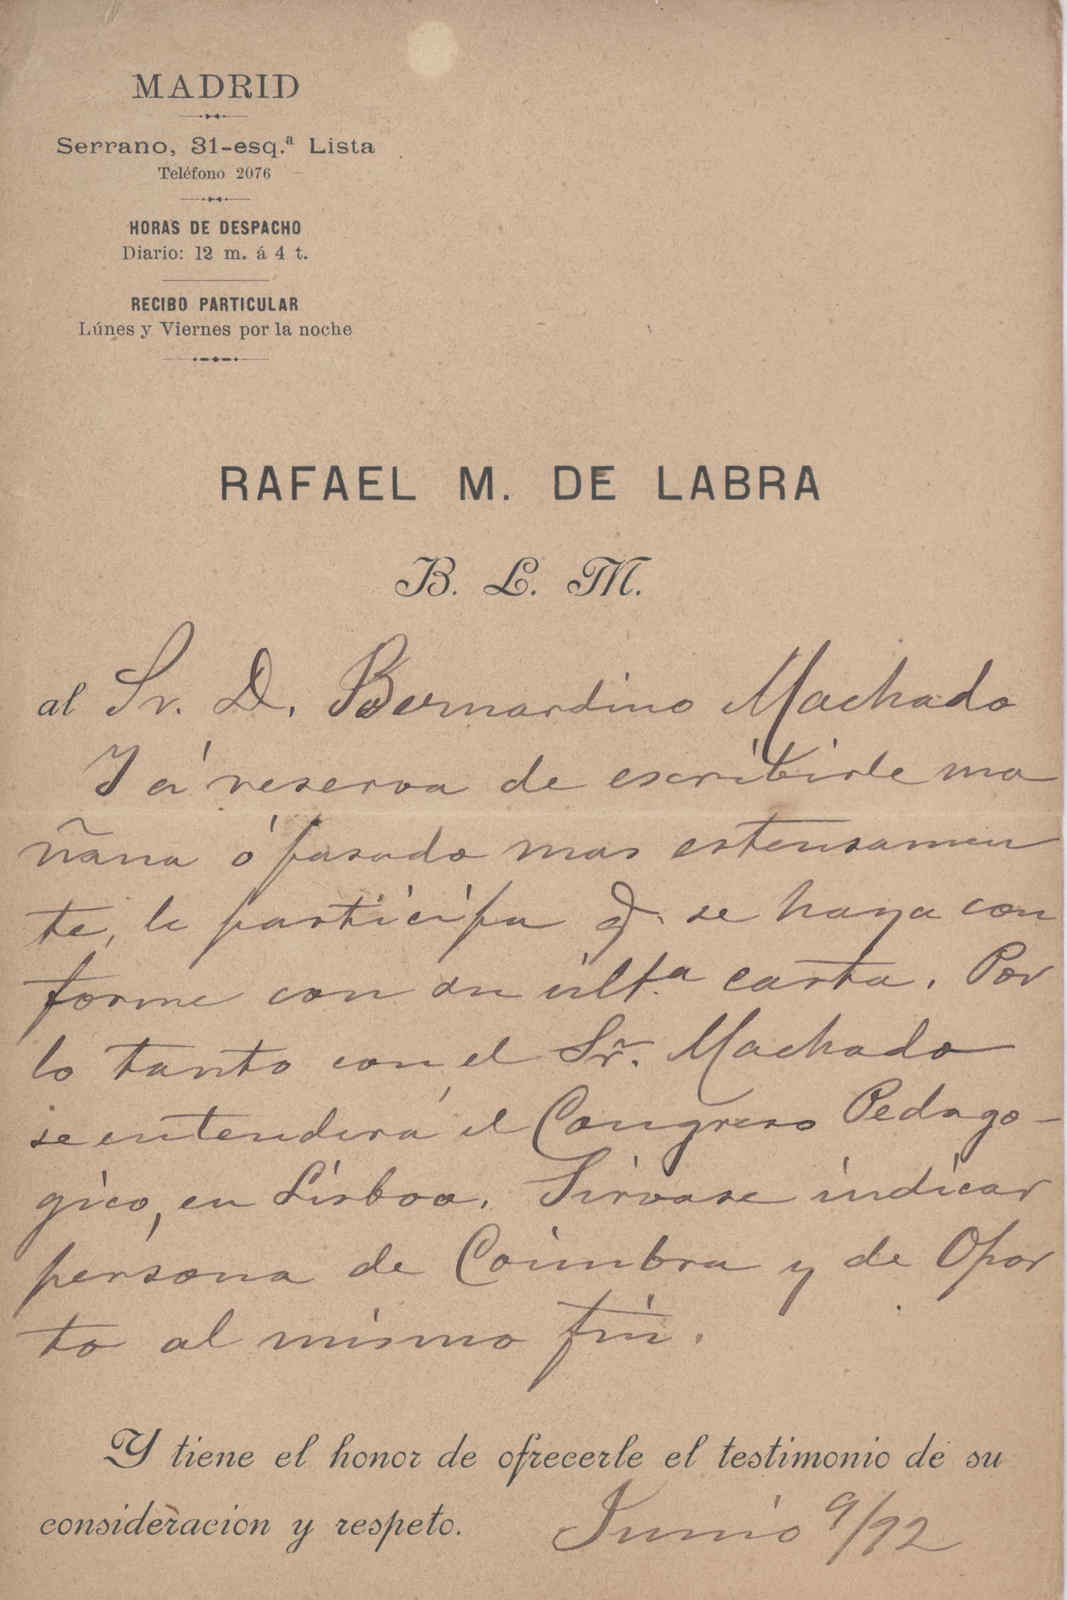 MADRID
Serrano, 31-esq.ª Lista
Teléfono 2076
HORAS DE DESPACHO
Diario: 12 m. á 4 t.
RECIBO PARTICULAR
Lúnes y Viernes por la noche
RAFAEL M. DE LABRA
B. L. M.
al Sr. D. Bernardino Machado
Y á reserva de escribirle ma
ñana ó pasado mas estensamen
te, le participa q. se haya con
forme con su últ.a carta. Por
lo tanto con el Sr. Machado
se entenderá el Congreso Pedago-
gico, en Lisboa. Sirvase indicar
persona de Coimbra y de Opor
to al mismo fin.
Y tiene el honor de ofrecerle el testimonio de su
consideracion y respeto. Junio 9/92